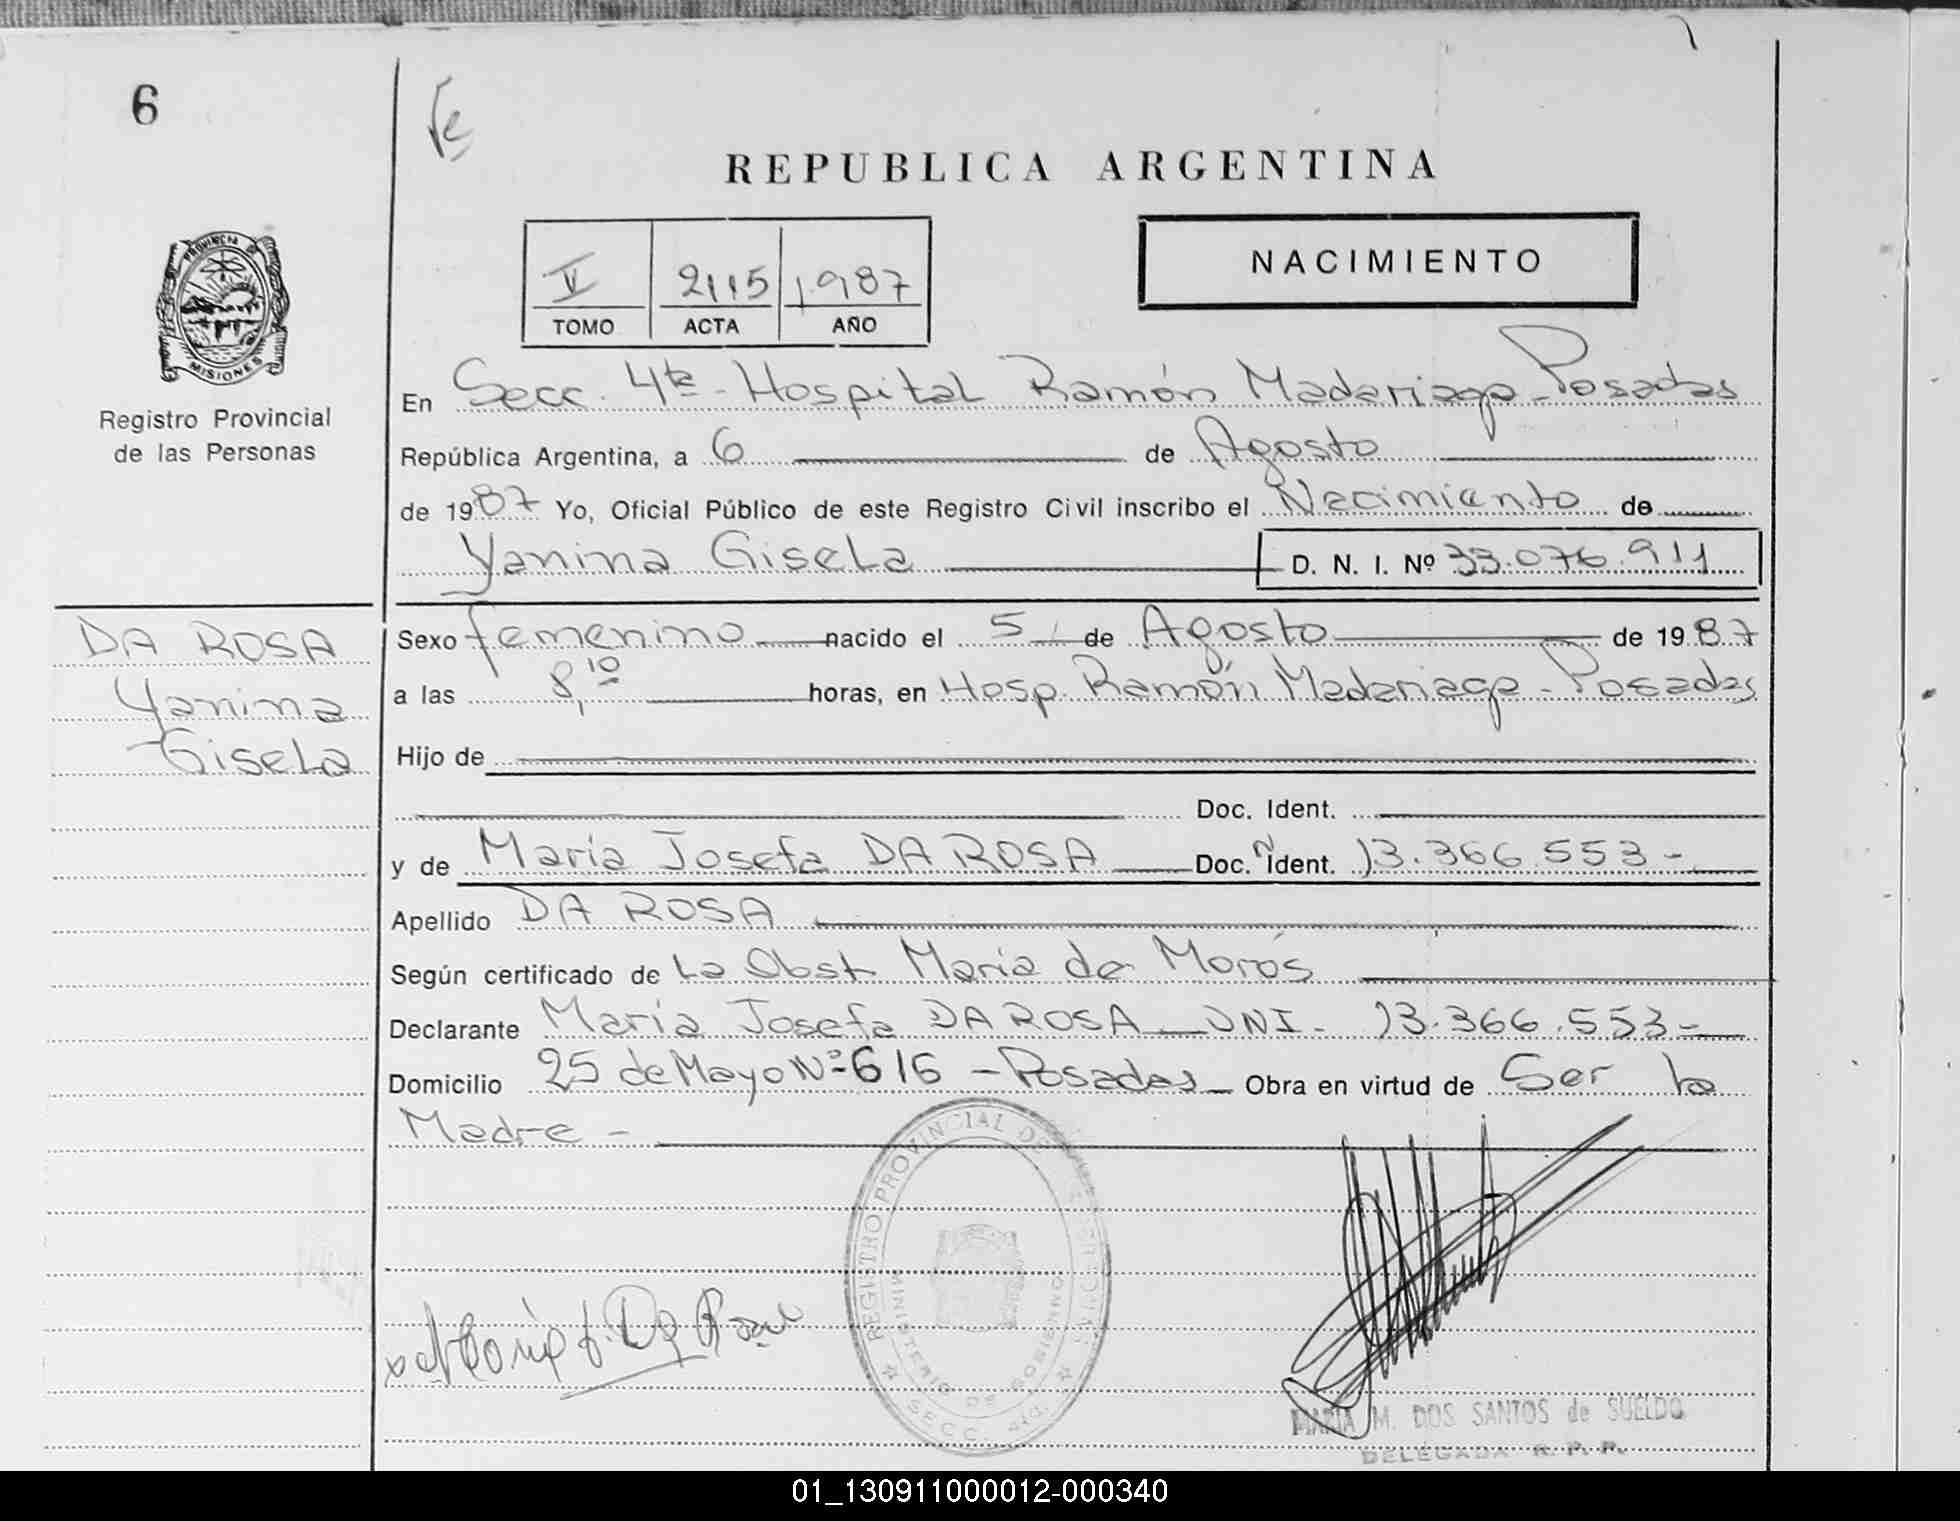 6
REPUBLICA ARGENTINA
V 2115 1987
TOMO ACTA AÑO
NACIMIENTO
PROVINCIA DE
MISIONES
Registro Provincial
de las Personas
En Secc. 4ta - Hospital Ramón Madariaga - Posadas
República Argentina, a 6 de Agosto
de 1987 Yo, Oficial Público de este Registro Civil inscribo el Nacimiento de
Yanina Gisela D. N. I. Nº 33.076.911
DA ROSA
Yanina
Gisela
Sexo femenino nacido el 5 de Agosto de 1987
a las 8,10 horas, en Hosp. Ramón Madariaga - Posadas
Hijo de
Doc. Ident.
y de María Josefa DA ROSA Doc. N Ident. 13.366.553-
Apellido DA ROSA
Según certificado de La Obst. María de Morós
Declarante María Josefa DA ROSA DNI - 13.366.553-
Domicilio 25 de Mayo Nº 616 - Posadas - Obra en virtud de Ser la
Madre -
REGISTRO PROVINCIAL DE
MINISTERIO DE GOBIERNO
SECC. 4ta.
Da Rosa
MARIA M. DOS SANTOS de SUELDO
DELEGADA R. P. P.
01_130911000012-000340